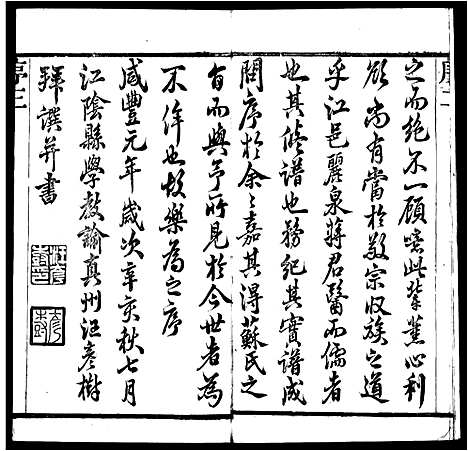 之而絕不一顧嗟此蒙薰心利
欲尚有當於敬宗收族之道
乎江邑麗泉蔣君醫而儒者
也其修譜也務紀其實譜成
問序於余々嘉其得蘇氏之
旨而與予所見於今世者為
不侔也故樂為之序
咸豐元年歲次辛亥秋七月
江陰縣學教諭真州汪彥樹
拜譔并書
序三